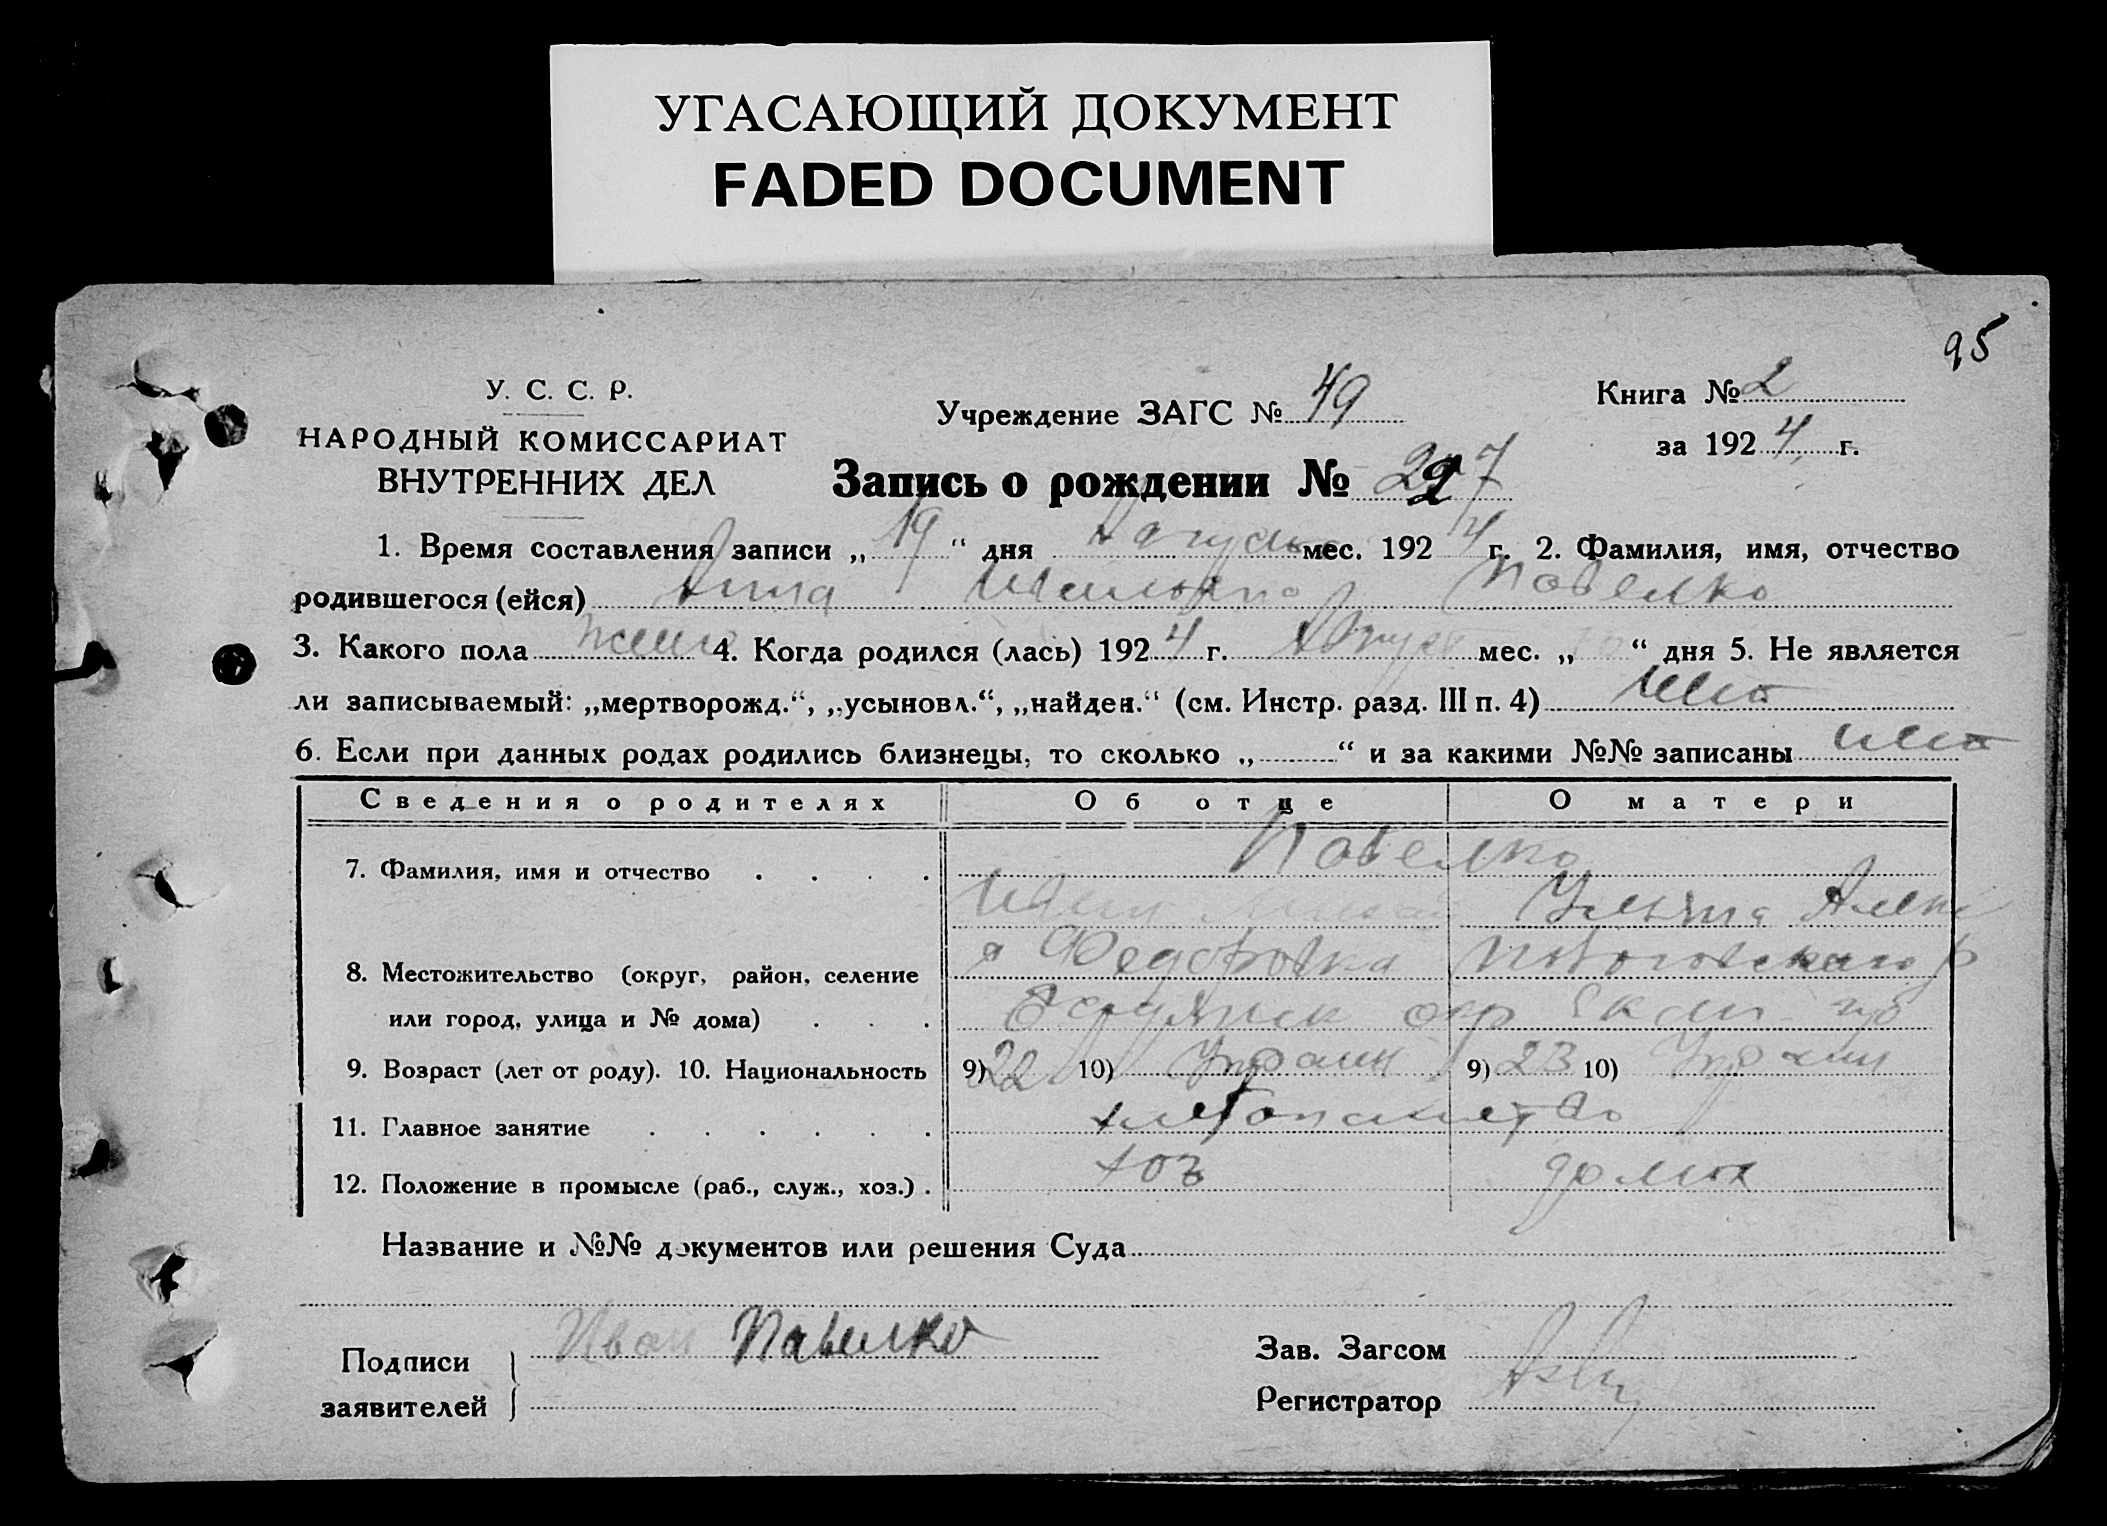 УГАСАЮЩИЙ ДОКУМЕНТ
FADED DOCUMENT
95
У. С. С. Р.
НАРОДНЫЙ КОМИССАРИАТ
ВНУТРЕННИХ ДЕЛ
Учреждение ЗАГС № 49
Книга № 2
за 1924 г.
Запись о рождении №
1. Время составления записи „ 19 “ дня Августа мес. 1924 г. 2. Фамилия, имя, отчество
родившегося (ейся) Анна Ивановна Павелко
3. Какого пола женс 4. Когда родился (лась) 1924 г. Август мес. „ “ дня 5. Не является
ли записываемый: „мертворожд.“, „усыновл.“, „найден.“ (см. Инстр. разд. III п. 4) нет
6. Если при данных родах родились близнецы, то сколько „ “ и за какими №№ записаны нет
Сведения о родителях Об отце О матери
7. Фамилия, имя и отчество Павелко
Иван Ульяна
8. Местожительство (округ, район, селение Федоровка
или город, улица и № дома) окр Екат губ
9. Возраст (лет от роду). 10. Национальность 9) 22 10) Украин 9) 23 10) Украин
11. Главное занятие хлебопашество
12. Положение в промысле (раб., служ., хоз.) хоз домох
Название и №№ документов или решения Суда
Подписи заявителей Иван Павелко
Зав. Загсом
Регистратор